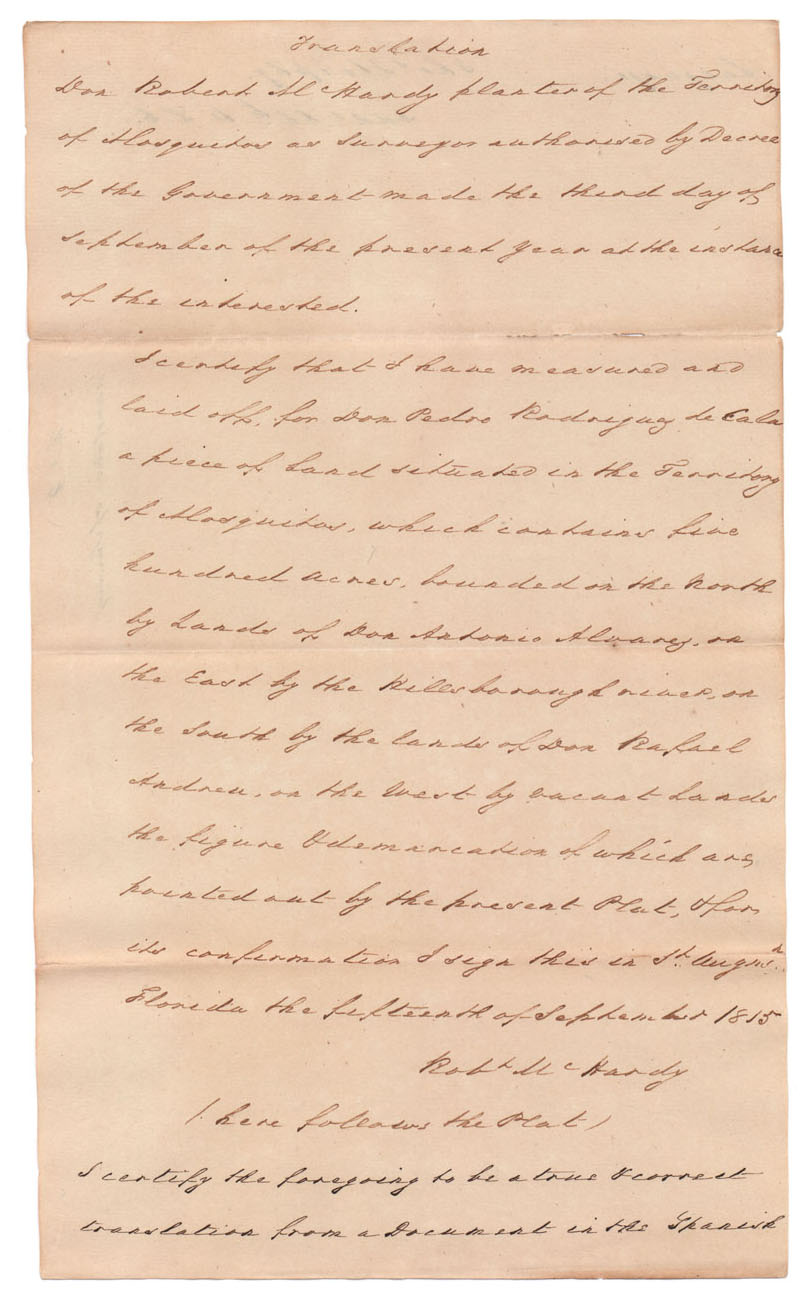 Translation
Don Robert McHardy planter of the Territory
of Mosquitos as surveyor authorised by Decree
of the Government made the third day of
September of the present Year at the instance
of the interested.
I certify that I have measured and
laid off, for Don Pedro Rodriguez de Cala
a piece of Land situated in the Territory
of Mosquitos, which contains five
hundred acres, bounded on the North
by Lands of Don Antonio Alvarez, on
the East by the Hillsborough river, on
the South by the lands of Don Rafael
Andreu, on the West by vacant Lands
the figure & demarcation of which are,
pointed out by the present Plat, & for
its confirmation I sign this in St. Augusn.
Florida the fifteenth of September 1815
Robt McHardy
(here follows the Plat)
I certify the foregoing to be a true & correct
translation from a Document in the Spanish